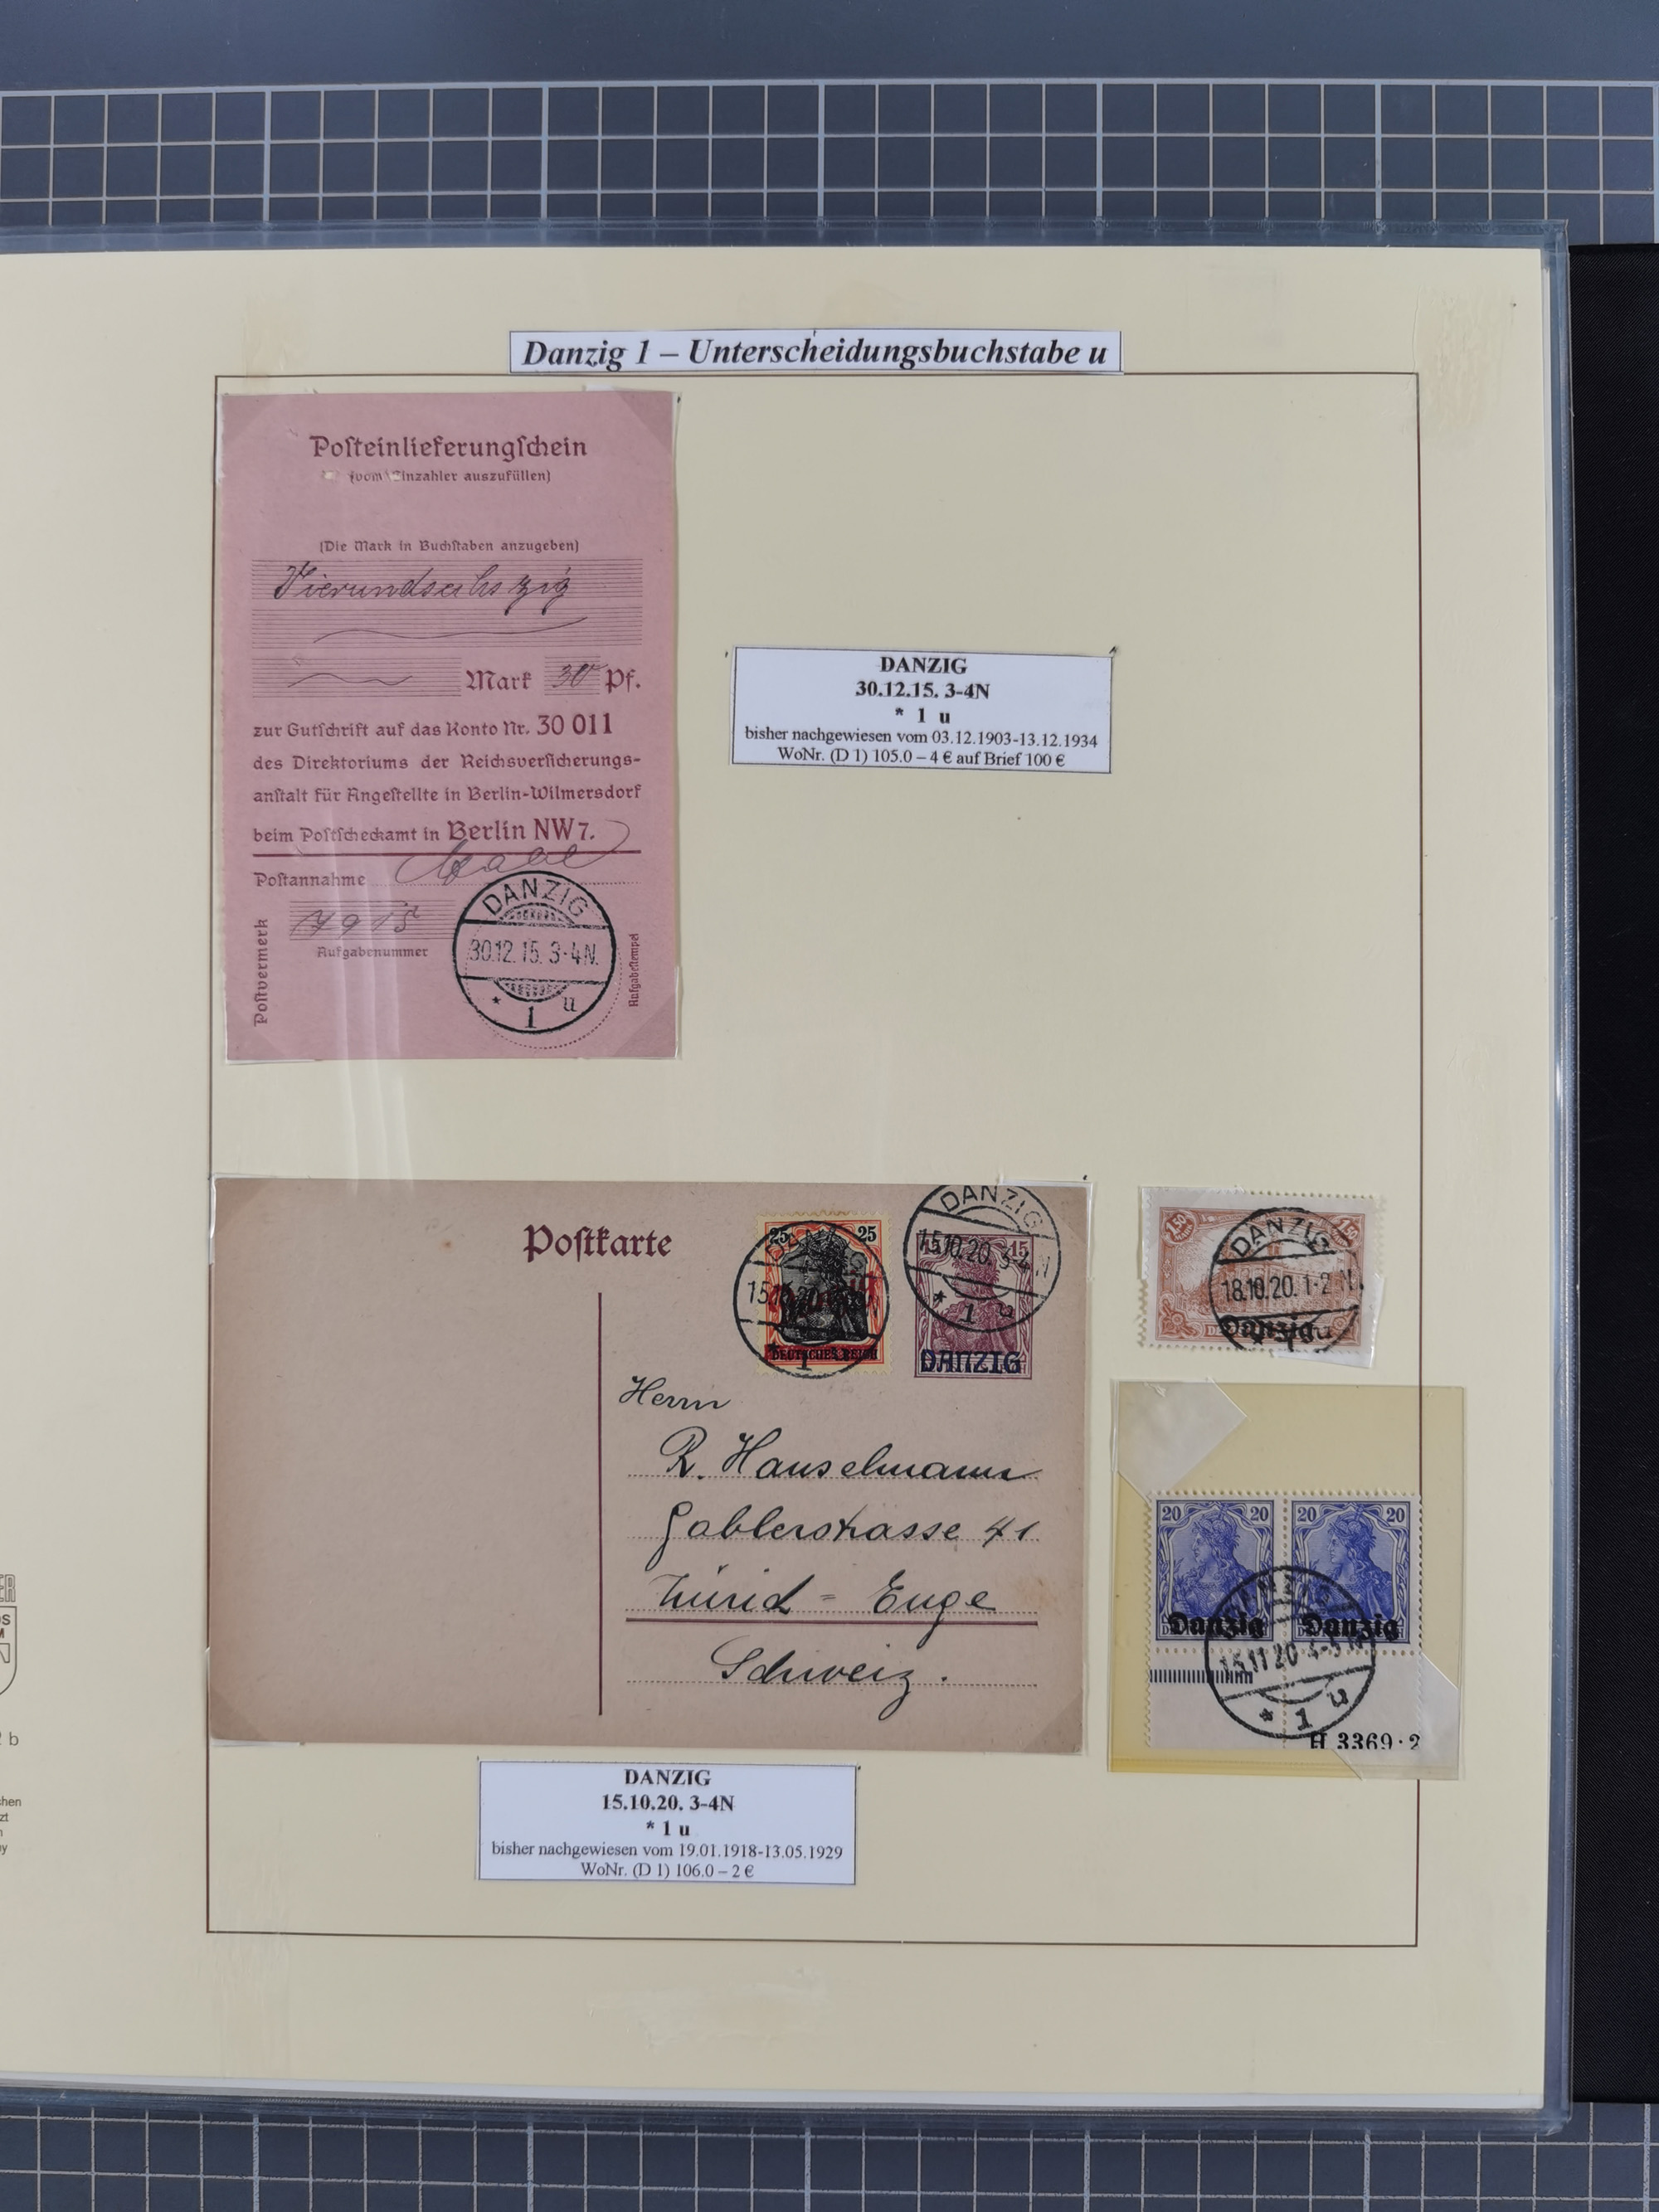 Danzig 1 – Unterscheidungsbuchstabe u
Poſteinlieferungſchein
(vom Einzahler auszufüllen)
(Die Mark in Buchſtaben anzugeben)
Vierundsechszig
Mark 30 Pf.
zur Gutſchrift auf das Konto Nr. 30 011
des Direktoriums der Reichsverſicherungs-
anſtalt für Angeſtellte in Berlin-Wilmersdorf
beim Poſtſcheckamt in Berlin NW 7.
Poſtannahme
Poſtvermerk
Aufgabenummer
Aufgabeſtempel
DANZIG
30.12.15. 3-4N.
* 1 u
DANZIG
30.12.15. 3-4N
* 1 u
bisher nachgewiesen vom 03.12.1903-13.12.1934
WoNr. (D 1) 105.0 – 4 € auf Brief 100 €
Poſtkarte
25 25
DEUTSCHES REICH
DANZIG
15.10.20. 3-4 N
* 1 u
15
DANZIG
Herrn
R. Hauselmann
Gablerstrasse 41
Zürich - Enge
Schweiz.
DANZIG
18.10.20. 1-2 N.
Danzig
20 20 20 20
Danzig Danzig
15.11.20 4-5 N
* 1 u
H 3369·2
DANZIG
15.10.20. 3-4N
* 1 u
bisher nachgewiesen vom 19.01.1918-13.05.1929
WoNr. (D 1) 106.0 – 2 €